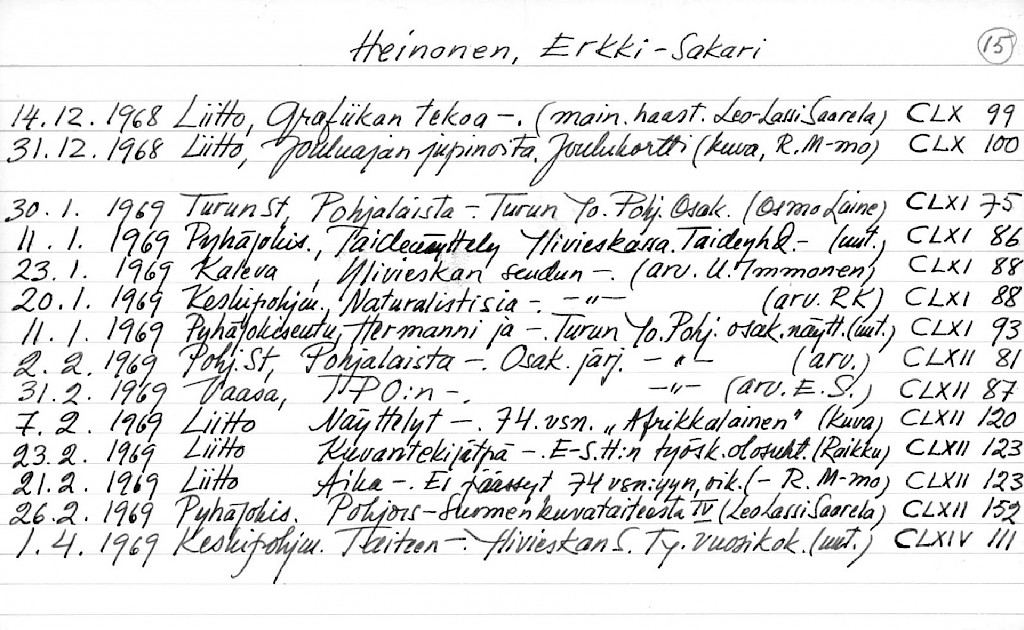 Heinonen, Erkki-Sakari 15
14.12.1968 Liitto, Grafiikan tekoa -. (main. haast. Leo-Lassi Saarela) CLX 99
31.12.1968 Liitto, Jouluajan jupinoita. Joulukortti (kuva, R.M-mo) CLX 100
30.1. 1969 Turun St, Pohjalaista -. Turun Yo. Pohj. Osak. (Osmo Laine) CLXI 75
11.1. 1969 Pyhäjokis., Taidenäyttely Ylivieskassa. Taideyhd.- (uut.) CLXI 86
23.1. 1969 Kaleva, Ylivieskan seudun -. (arv. U. Immonen) CLXI 88
20.1. 1969 Keskipohjm., Naturalistisia -. -"- (arv. RK) CLXI 88
11.1. 1969 Pyhäjokiseutu, Hermanni ja -. Turun Yo. Pohj. osak. näytt. (uut.) CLXI 93
2.2. 1969 Pohj. St, Pohjalaista -. Osak. järj. -"- (arv.) CLXII 81
31.2. 1969 Vaasa, TPO:n -. -"- (arv. E.S.) CLXII 87
7.2. 1969 Liitto Näyttelyt -. 74. vsn. "Afrikkalainen" (kuva) CLXII 120
23.2. 1969 Liitto Kuvantekijältä -. E-S.H:n työsk. olosuht. (Raikku) CLXII 123
21.2. 1969 Liitto Aika -. Ei päässyt 74 vsn:yyn, oik. (- R. M-mo) CLXII 123
26.2. 1969 Pyhäjokis. Pohjois-Suomen kuvataiteesta IV (Leo Lassi Saarela) CLXII 152
1.4. 1969 Keskipohjm. Taiteen -. Ylivieskan S. Ty. vuosikok. (uut.) CLXIV 111